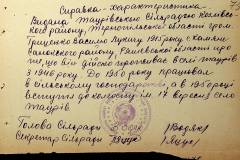 Справка-характеристика
Видана Таурівською сільрадою Козлівсь-
кого району, Тернопільської області гром.
Гриценко Василь Лукич 1915 року с.
Сяноцького району, області про
те, що він дійсно проживає в селі Таурів
з 1946 року. До 1950 року працював
в сільському господарстві, а в 1950 році
вступив до колгоспу ім 17 вересня село
Таурів.
Голова Сільради
Секретар Сільради